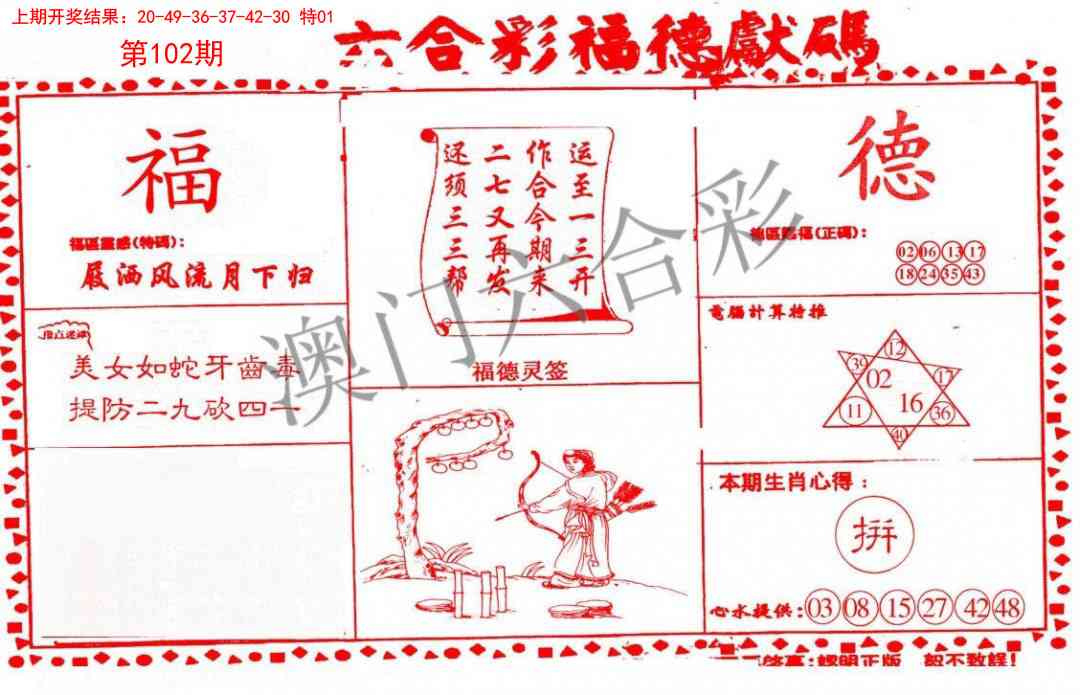 上期开奖结果：20-49-36-37-42-30 特01
第102期
六合彩福德獻碼
福
福區靈感(特碼):
屐洒风流月下归
美女如蛇牙齒毒
提防二九砍四一
运至一三开
作合今期来
二七又再发
还须三三帮
福德灵签
德
(正碼):
02 06 13 17
18 24 35 43
電腦計算特推
12
39
02
17
11
16
36
40
本期生肖心得：
拼
心水提供: 03 08 15 27 42 48
澳门六合彩